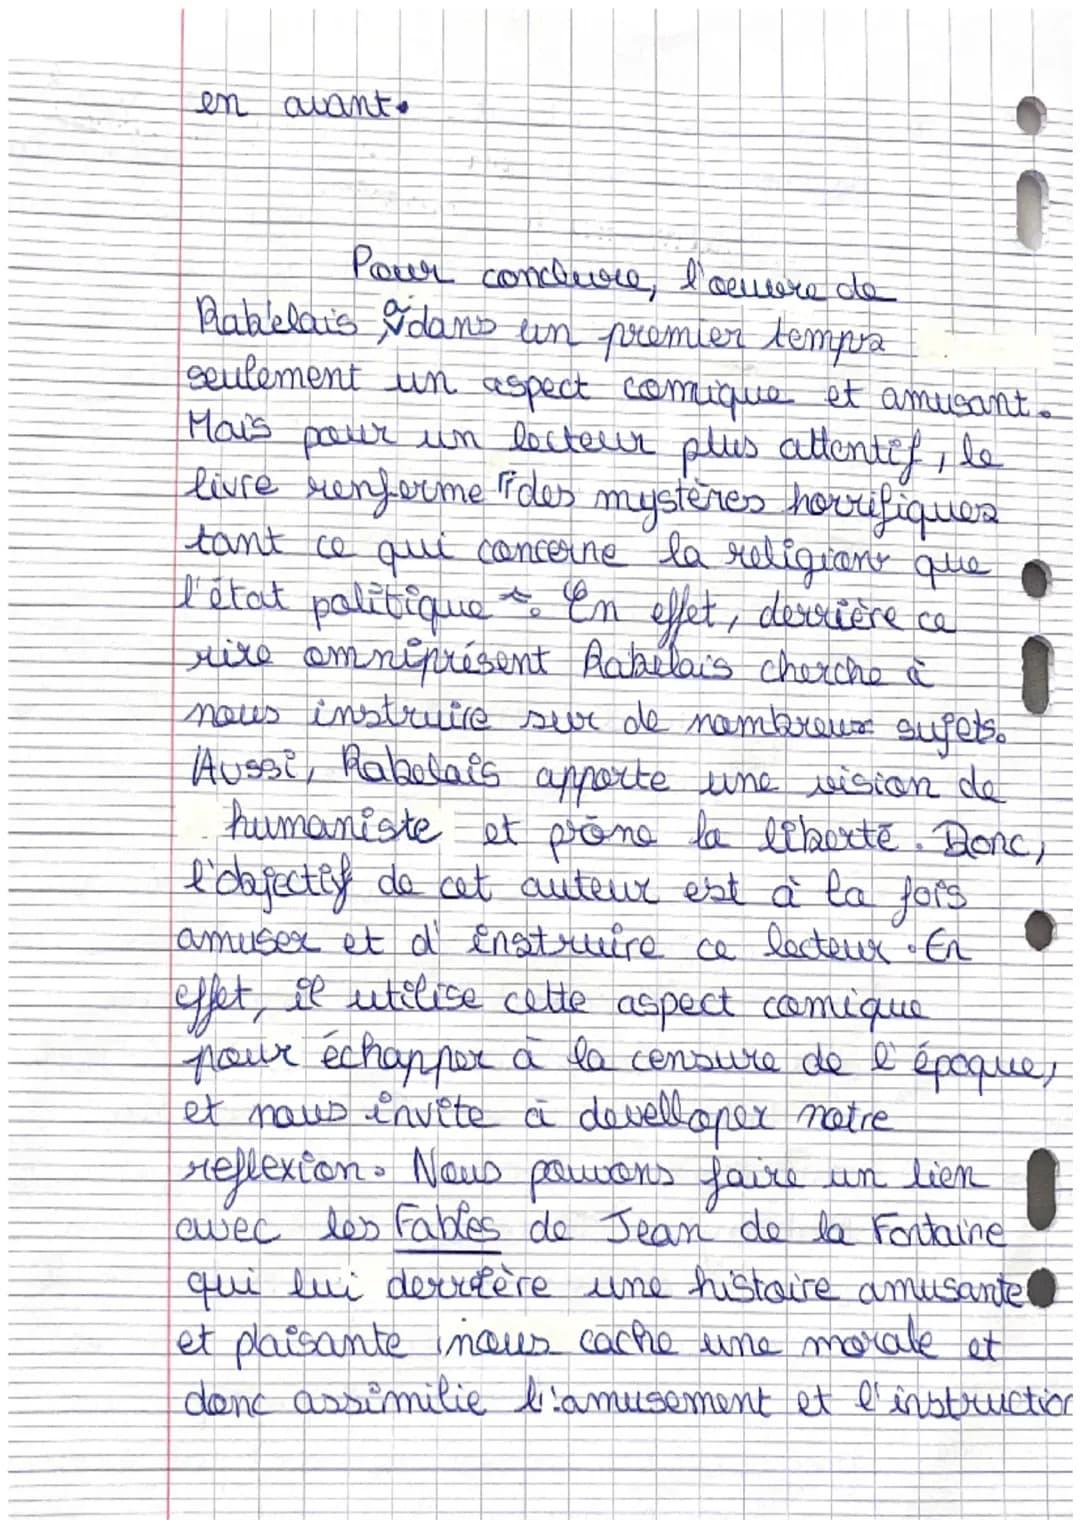 en avant.
Pour conclure, l'oeuvre de
Rabelais a dans un premier temps
seulement un aspect comique et amusant.
Mais pour un lecteur plus attentif, le
livre renferme "des mystères horrifiques
tant ce qui concerne la religion que
l'état politique". En effet, derrière ce
rire omniprésent Rabelais cherche à
nous instruire sur de nombreux sujets.
Aussi, Rabelais apporte une vision de
humaniste et prône la liberté. Donc,
l'objectif de cet auteur est à la fois
amuser et d'instruire ce lecteur. En
effet, il utilise cette aspect comique
pour échapper à la censure de l'époque,
et nous invite à develloper notre
reflexion. Nous pouvons faire un lien
avec les Fables de Jean de la Fontaine
qui lui derrière une histoire amusante
et plaisante nous cache une morale et
donc assimilie l'amusement et l'instruction